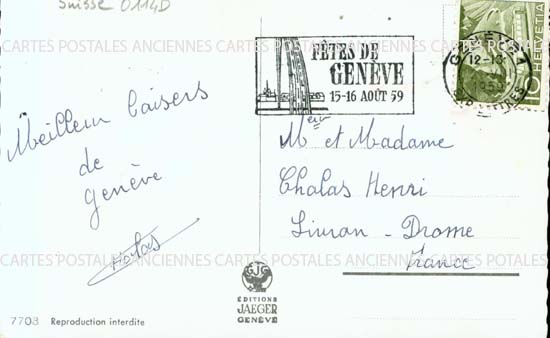 Suisse 0114D
CARTES POSTALES ANCIENNES CARTES POSTALES ANCIENNES CARTES POSTALES
FÊTES DE
GENÈVE
15-16 AOÛT 59
HELVETIA
GENÈVE 1
12-13
1959
Meilleur baisers
de
Genève
Chalas
Meur et Madame
Chalas Henri
Livron - Drome
France
CARTES POSTALES ANCIENNES CARTES POSTALES ANCIENNES CARTES POSTALES
ÉDITIONS
JAEGER
GENÈVE
7703 Reproduction interdite